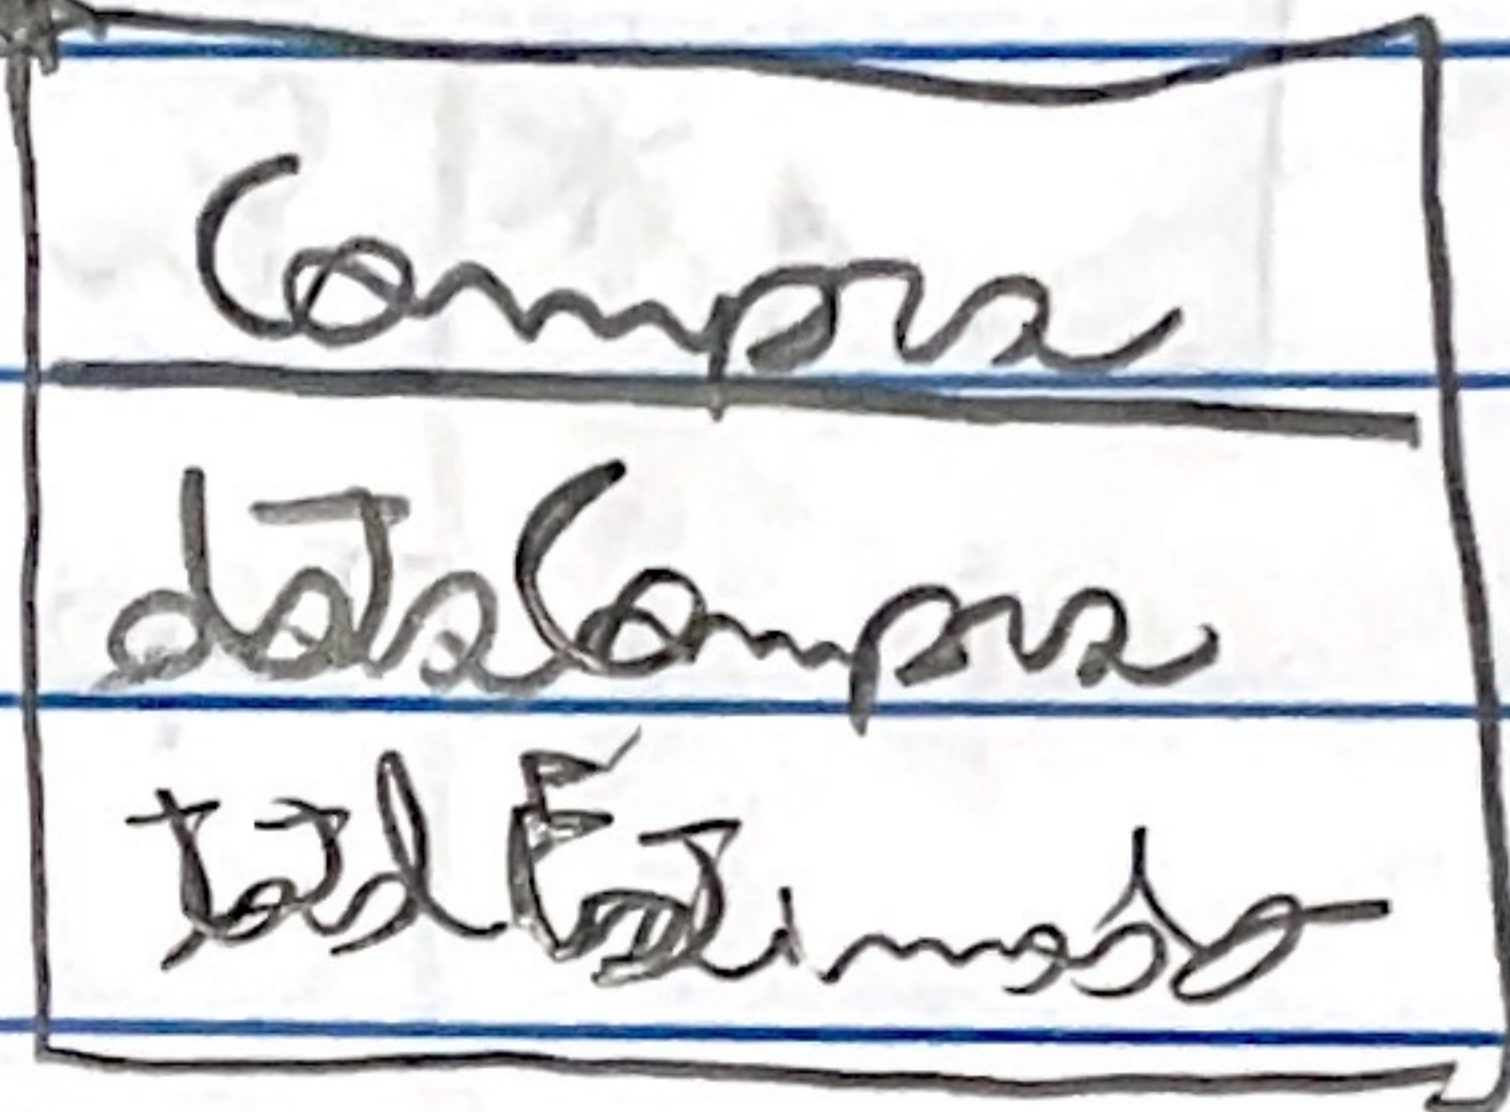 Compra
dataCompra
totalEstimado